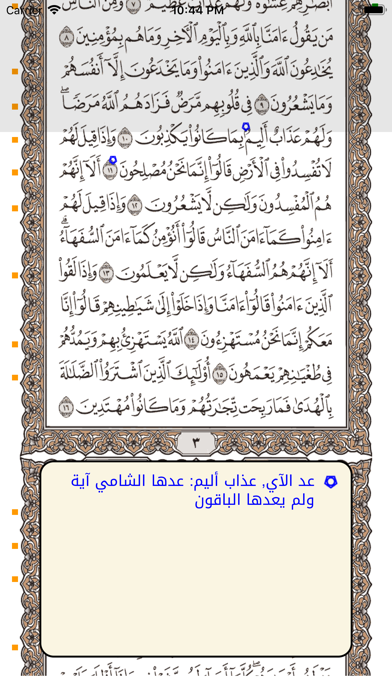 Carrier 10:44 PM
أَبْصَٰرِهِمْ غِشَٰوَةٌ وَلَهُمْ عَذَابٌ عَظِيمٌ ٧ وَمِنَ ٱلنَّاسِ
مَن يَقُولُ ءَامَنَّا بِٱللَّهِ وَبِٱلْيَوْمِ ٱلْءَاخِرِ وَمَا هُم بِمُؤْمِنِينَ ٨
يُخَٰدِعُونَ ٱللَّهَ وَٱلَّذِينَ ءَامَنُوا۟ وَمَا يَخْدَعُونَ إِلَّآ أَنفُسَهُمْ
وَمَا يَشْعُرُونَ ٩ فِى قُلُوبِهِم مَّرَضٌ فَزَادَهُمُ ٱللَّهُ مَرَضًا ۖ
وَلَهُمْ عَذَابٌ أَلِيمٌۢ بِمَا كَانُوا۟ يَكْذِبُونَ ١٠ وَإِذَا قِيلَ لَهُمْ
لَا تُفْسِدُوا۟ فِى ٱلْأَرْضِ قَالُوٓا۟ إِنَّمَا نَحْنُ مُصْلِحُونَ ١١ أَلَآ إِنَّهُمْ
هُمُ ٱلْمُفْسِدُونَ وَلَٰكِن لَّا يَشْعُرُونَ ١٢ وَإِذَا قِيلَ لَهُمْ
ءَامِنُوا۟ كَمَآ ءَامَنَ ٱلنَّاسُ قَالُوٓا۟ أَنُؤْمِنُ كَمَآ ءَامَنَ ٱلسُّفَهَآءُ ۗ
أَلَآ إِنَّهُمْ هُمُ ٱلسُّفَهَآءُ وَلَٰكِن لَّا يَعْلَمُونَ ١٣ وَإِذَا لَقُوا۟
ٱلَّذِينَ ءَامَنُوا۟ قَالُوٓا۟ ءَامَنَّا وَإِذَا خَلَوْا۟ إِلَىٰ شَيَٰطِينِهِمْ قَالُوٓا۟ إِنَّا
مَعَكُمْ إِنَّمَا نَحْنُ مُسْتَهْزِءُونَ ١٤ ٱللَّهُ يَسْتَهْزِئُ بِهِمْ وَيَمُدُّهُمْ
فِى طُغْيَٰنِهِمْ يَعْمَهُونَ ١٥ أُو۟لَٰٓئِكَ ٱلَّذِينَ ٱشْتَرَوُا۟ ٱلضَّلَٰلَةَ
بِٱلْهُدَىٰ فَمَا رَبِحَت تِّجَٰرَتُهُمْ وَمَا كَانُوا۟ مُهْتَدِينَ ١٦
٣
عد الآي, عذاب أليم: عدها الشامي آية
ولم يعدها الباقون